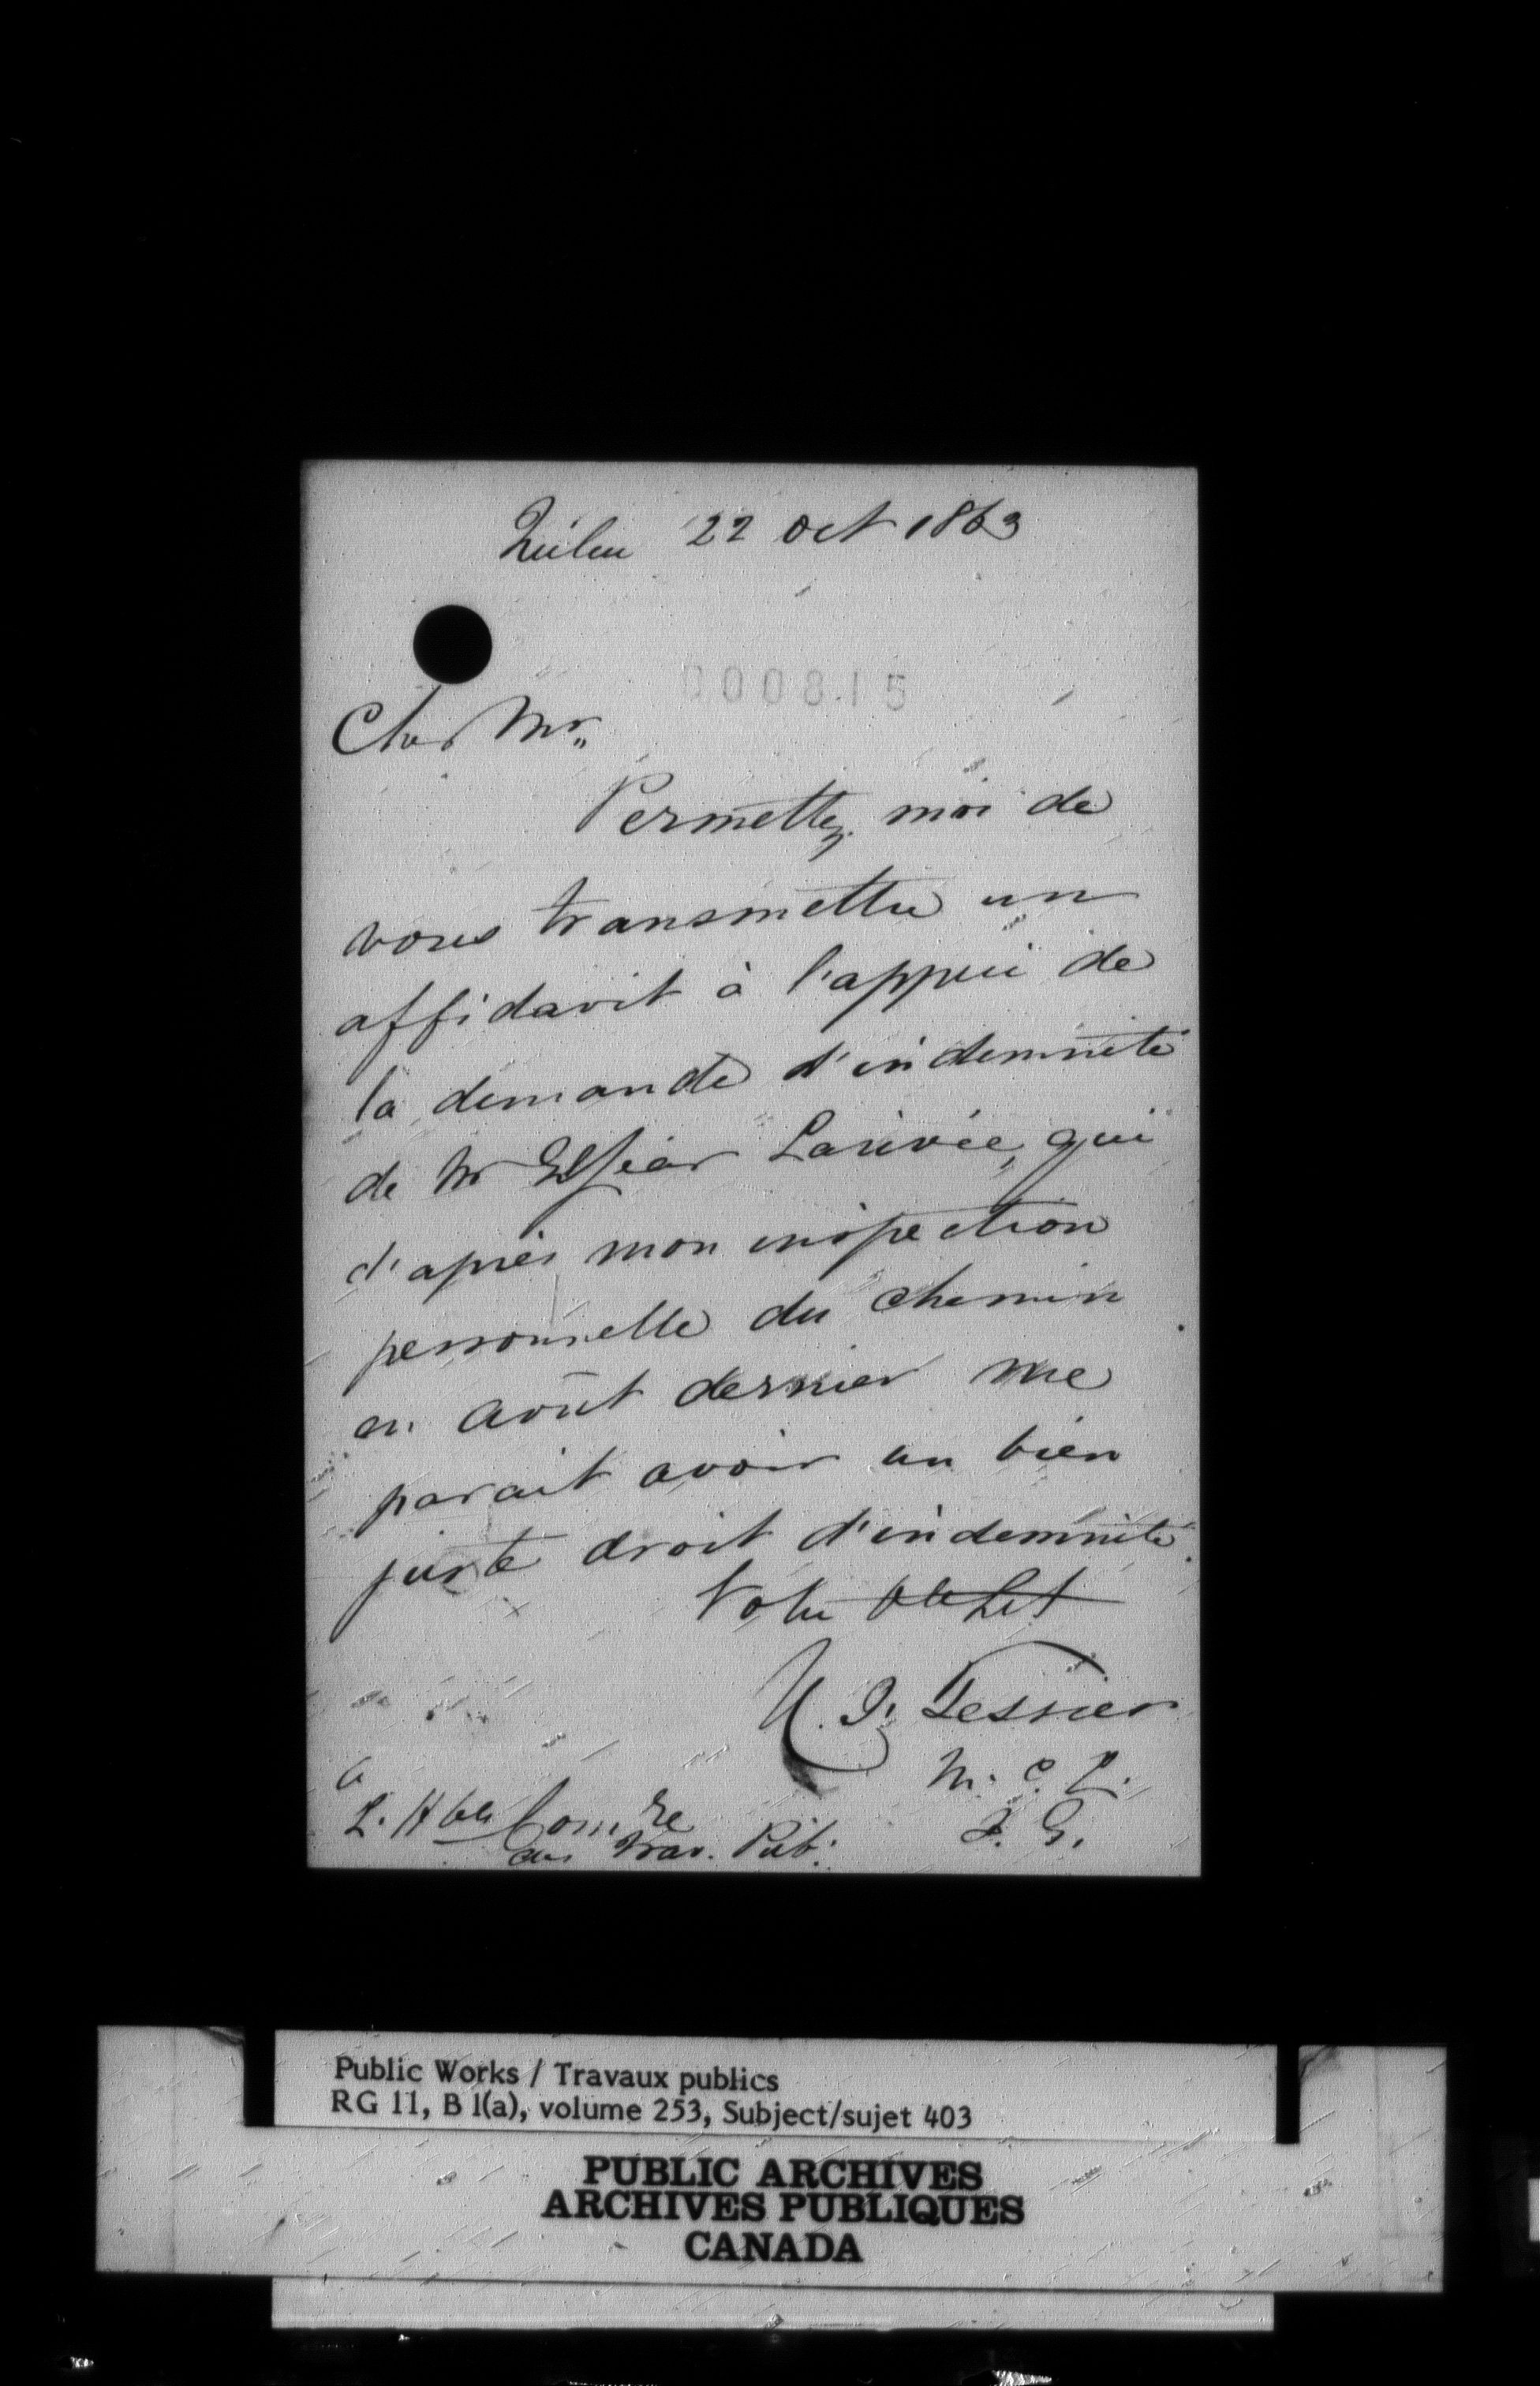 Québec 22 Oct 1863
000815
Cher Mr.
Permettez moi de
vous transmettre un
affidavit à l'appui de
la demande d'indemnité
de Mr Elzéar Larivée, qui
d'après mon inspection
personnelle du chemin
en Août dernier me
parait avoir un bien
juste droit d'indemnité.
Votre
U. J. Tessier
M. C. L.
D. G.
à
L. Hble Com.re
des Trav. Pub.
Public Works / Travaux publics
RG 11, B 1(a), volume 253, Subject/sujet 403
PUBLIC ARCHIVES
ARCHIVES PUBLIQUES
CANADA